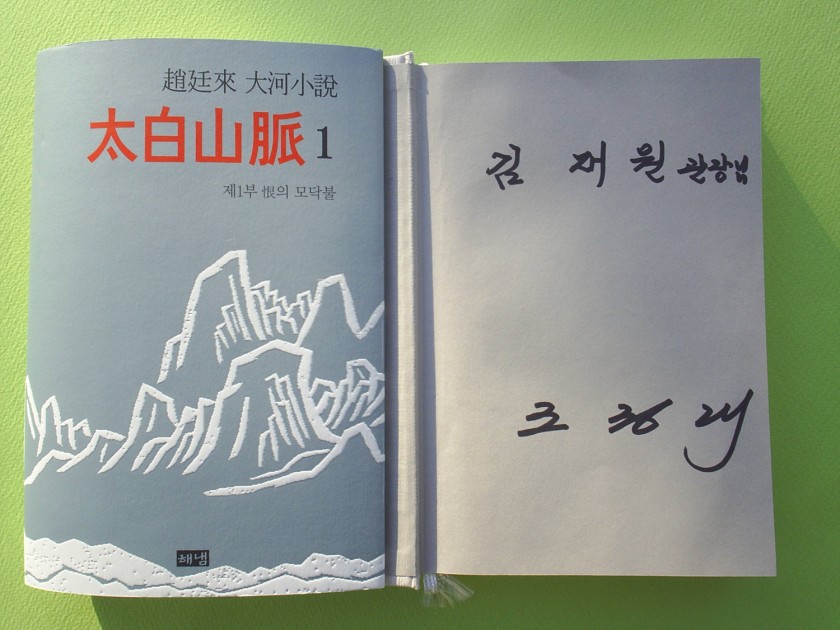 趙廷來 大河小說
太白山脈 1
제1부 恨의 모닥불
해냄
김 재원 관장님
조 정 래